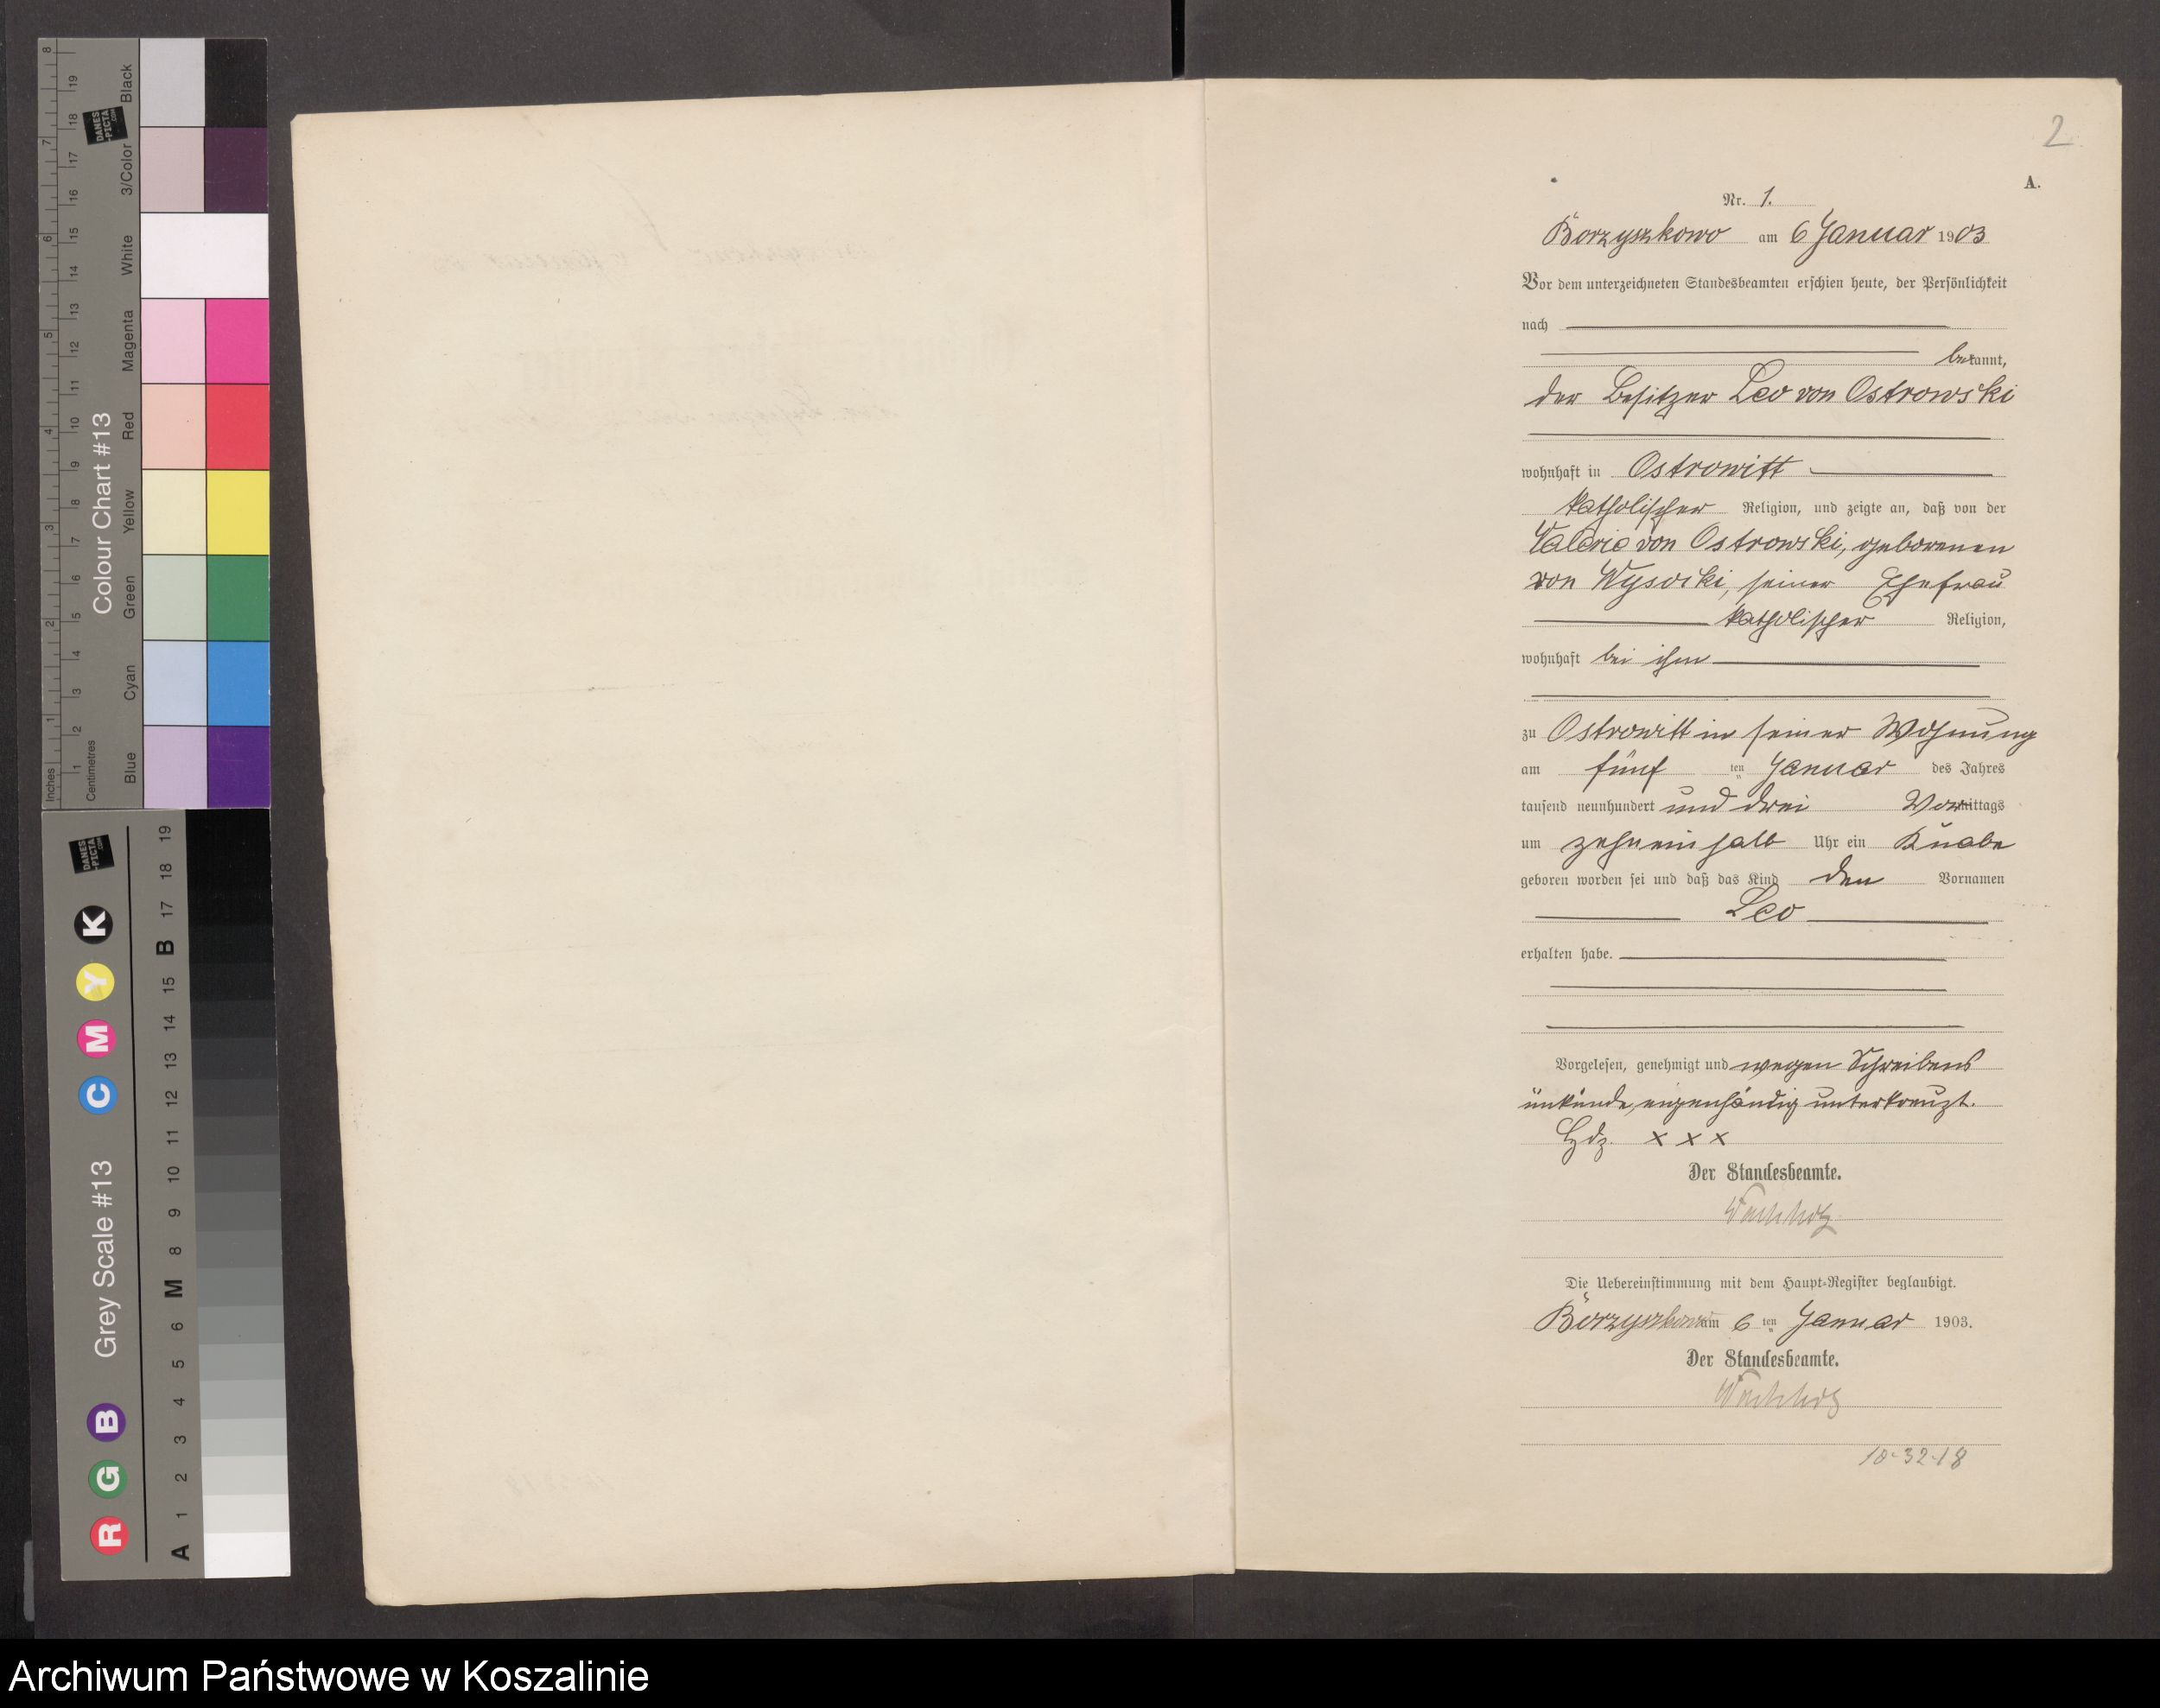 2
A.
Nr. 1.
Borzyszkowo am 6 Januar 1903
Vor dem unterzeichneten Standesbeamten erschien heute, der Persönlichkeit
nach
bekannt,
der Besitzer Leo von Ostrowski
wohnhaft in Ostrowitt
katholischer Religion, und zeigte an, daß von der
Valeria von Ostrowski, geborenen
von Wysocki, seiner Ehefrau
katholischer Religion,
wohnhaft bei ihm
zu Ostrowitt in seiner Wohnung
am fünf ten Januar des Jahres
tausend neunhundert und drei Vormittags
um zehneinhalb Uhr ein Knabe
geboren worden sei und daß das Kind den Vornamen
Leo
erhalten habe.
Vorgelesen, genehmigt und wegen Schreibens
unkunde eigenhändig unterkreuzt.
Hdz. x x x
Der Standesbeamte.
Die Uebereinstimmung mit dem Haupt-Register beglaubigt.
Borzyszkowo am 6 ten Januar 1903.
Der Standesbeamte.
10-32-18
Colour Chart #13
Black
3/Color
White
Magenta
Red
Yellow
Green
Cyan
Blue
Inches 1 2 3 4 5 6 7 8
Centimetres 1 2 3 4 5 6 7 8 9 10 11 12 13 14 15 16 17 18 19
DANES
-PICTA
.COM
Grey Scale #13
R G B C M Y K
A 1 2 3 4 5 6 M 8 9 10 11 12 13 14 15 B 17 18 19
DANES
-PICTA
.COM
Archiwum Państwowe w Koszalinie